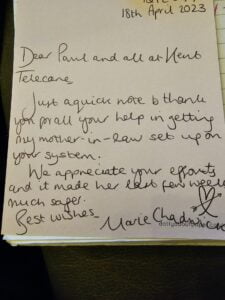 18th April 2023
Dear Paul and all at Kent
Telecare,
Just a quick note to thank
you for all your help in getting
my mother-in-law set up on
your system.
We appreciate your efforts
and it made her last few weeks
much safer.
Best wishes
Marie Chadwick